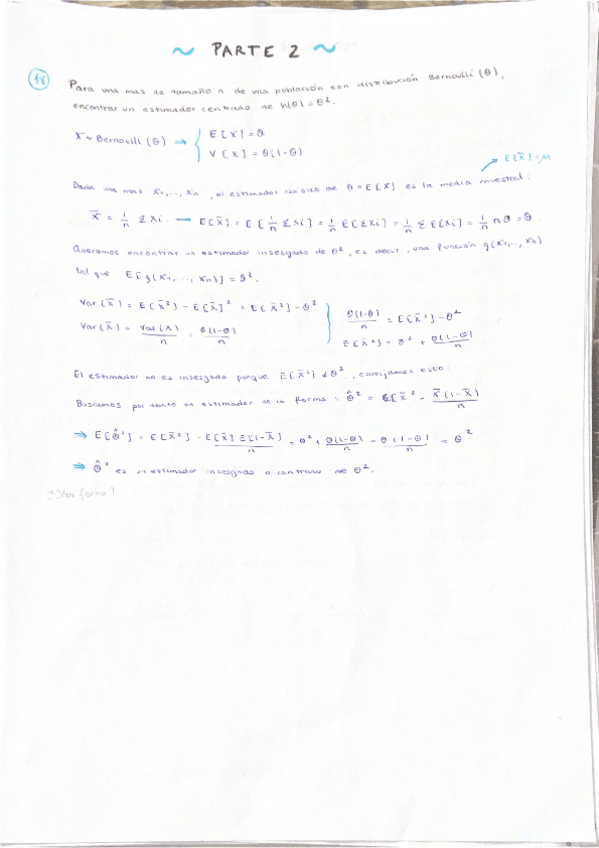 ~ PARTE 2 ~
18. Para una mas de tamaño n de una población con distribución Bernoulli (θ),
encontrar un estimador centrado de h(θ) = θ².
X ~ Bernoulli (θ) → { E[X] = θ
V[X] = θ(1-θ)
E[X̄] = μ
Dada una mas X₁,..,Xn, el estimador clásico de θ = E[X] es la media muestral:
X̄ = 1/n ΣXi. → E[X̄] = E[1/n ΣXi] = 1/n E[ΣXi] = 1/n Σ E[Xi] = 1/n nθ = θ.
Queremos encontrar un estimador insesgado de θ², es decir, una función g(X₁,..,Xn)
tal que E[g(X₁,...,Xn)] = θ².
Var(X̄) = E[X̄²] - E[X̄]² = E[X̄²] - θ²
Var(X̄) = Var(X)/n = θ(1-θ)/n
θ(1-θ)/n = E[X̄²] - θ²
E[X̄²] = θ² + θ(1-θ)/n
El estimador no es insesgado porque E[X̄²] ≠ θ², corrijamos esto:
Buscamos por tanto un estimador de la forma: θ̂² = X̄² - X̄(1-X̄)/n
⇒ E[θ̂²] = E[X̄²] - E[X̄]E[1-X̄]/n = θ² + θ(1-θ)/n - θ(1-θ)/n = θ²
⇒ θ̂² es un estimador insesgado o centrado de θ².
forma?